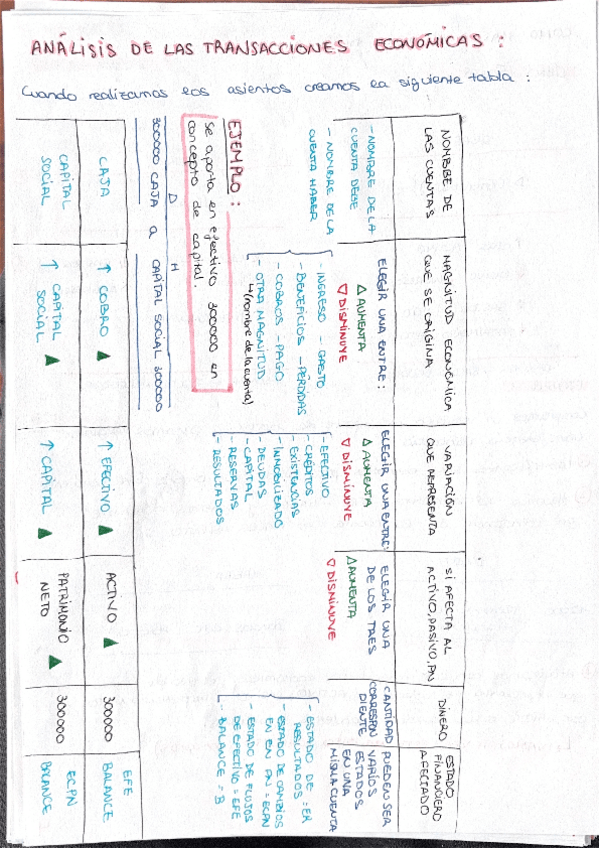 ANÁLISIS DE LAS TRANSACCIONES ECONÓMICAS :
Cuando realizamos los asientos creamos la siguiente tabla :
NOMBRE DE
LAS CUENTAS
MAGNITUD ECONÓMICA
QUE SE ORIGINA
VARIACIÓN
QUE REPRESENTA
SI AFECTA AL
ACTIVO, PASIVO, PN
DINERO
ESTADO
FINANCIERO
AFECTADO
- NOMBRE DE LA
CUENTA DEBE
- NOMBRE DE LA
CUENTA HABER
ELEGIR UNA ENTRE :
△ AUMENTA
▽ DISMINUYE
- INGRESO - GASTO
- BENEFICIOS - PERDIDAS
- COBROS - PAGO
- OTRA MAGNITUD
↳ (nombre de la cuenta)
ELEGIR UNA ENTRE:
△ AUMENTA
▽ DISMINUYE
- EFECTIVO
- CRÉDITOS
- EXISTENCIAS
- INMOVILIZADO
- DEUDAS
- CAPITAL
- RESERVAS
- RESULTADOS
ELEGIR UNA
DE LOS TRES
△ AUMENTA
▽ DISMINUYE
CANTIDAD
CORRESPON
DIENTE
PUEDEN SER
VARIOS
ESTADOS
EN UNA
MISMA CUENTA
- ESTADO DE : ER
RESULTADOS
- ESTADO DE CAMBIOS
EN EN PN = ECPN
- ESTADO DE FLUJOS
DE EFECTIVO = EFE
- BALANCE = B
EJEMPLO :
Se aporta en efectivo 300000 en
concepto de capital.
D H
300000 CAJA a CAPITAL SOCIAL 300000
CAJA
↑ COBRO ▲
↑ EFECTIVO ▲
ACTIVO ▲
300000
EFE
BALANCE
CAPITAL
SOCIAL
↑ CAPITAL ▲
SOCIAL
↑ CAPITAL ▲
PATRIMONIO ▲
NETO
300000
ECPN
BALANCE